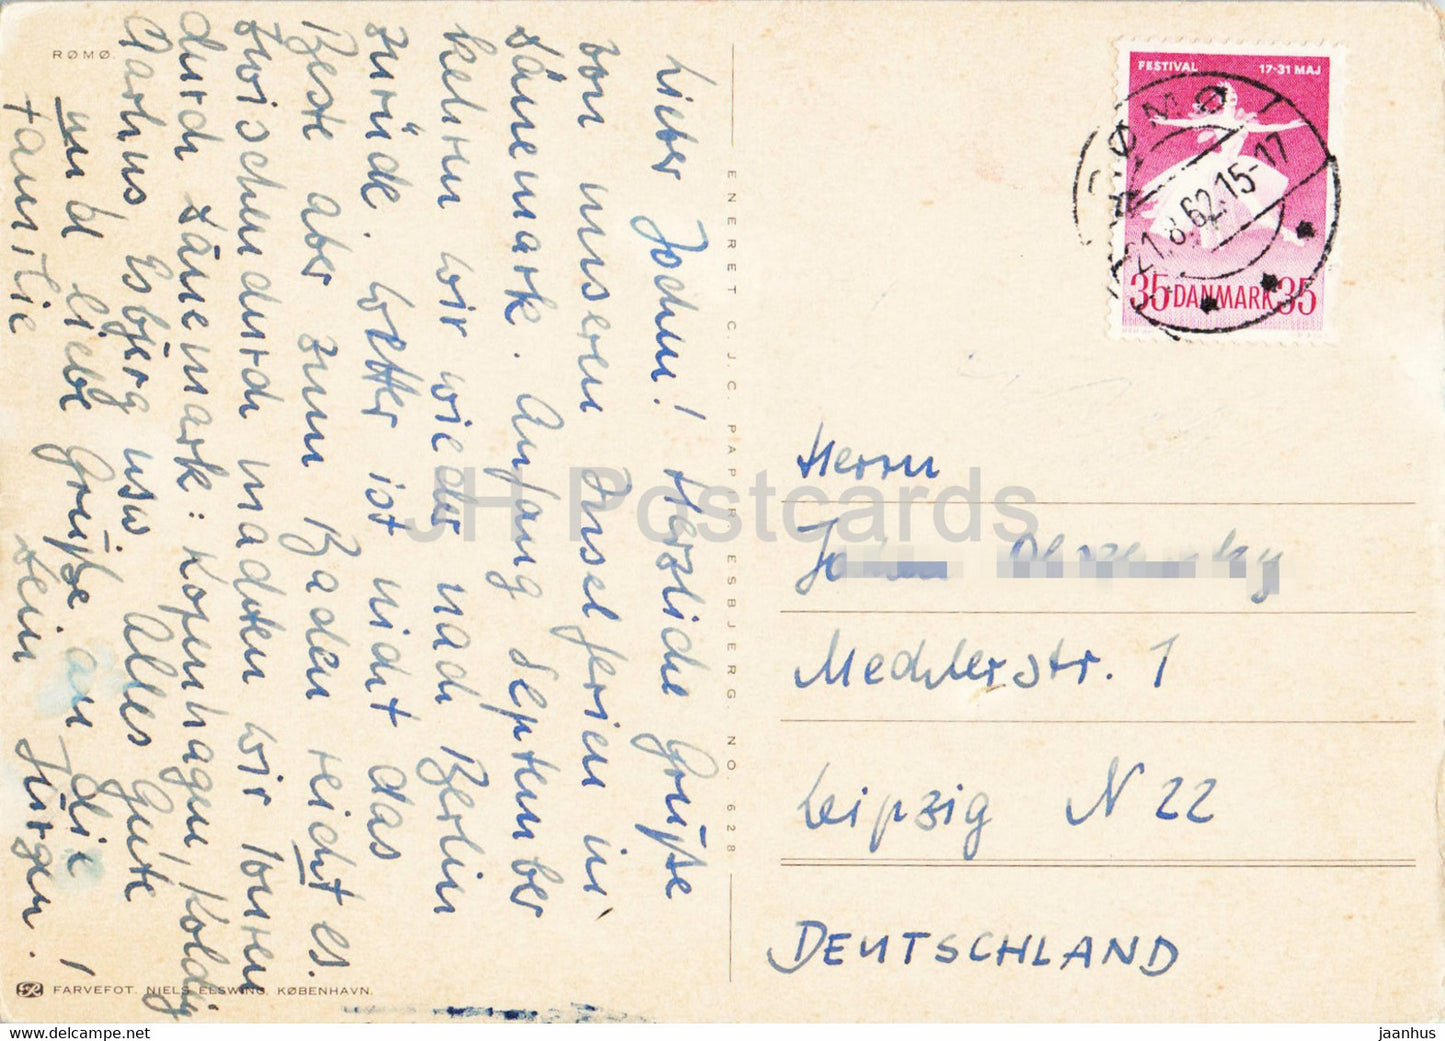 RØMØ.
Lieber Jochen! Herzliche Grüße
von unseren Inselferien in
Dänemark. Anfang September
kehren wir wieder nach Berlin
zurück. Wetter ist nicht das
Beste aber zum Baden reicht es.
Zwischendurch machten wir Touren
durch Dänemark: Kopenhagen, Kolding
Aarhus, Esbjerg usw. Alles Gute
und liebe Grüße an die
Familie Dein Jürgen.
ENERET C.J.C. PAPIR ESBJERG. NO. 628
FARVEFOT. NIELS ELSWING. KØBENHAVN.
FESTIVAL 17-31 MAJ
35 DANMARK 35
RØMØ
21.8.62.15-17
Herrn
Mechlerstr. 1
Leipzig N 22
DEUTSCHLAND
JH Postcards
www.delcampe.net
jaanhus